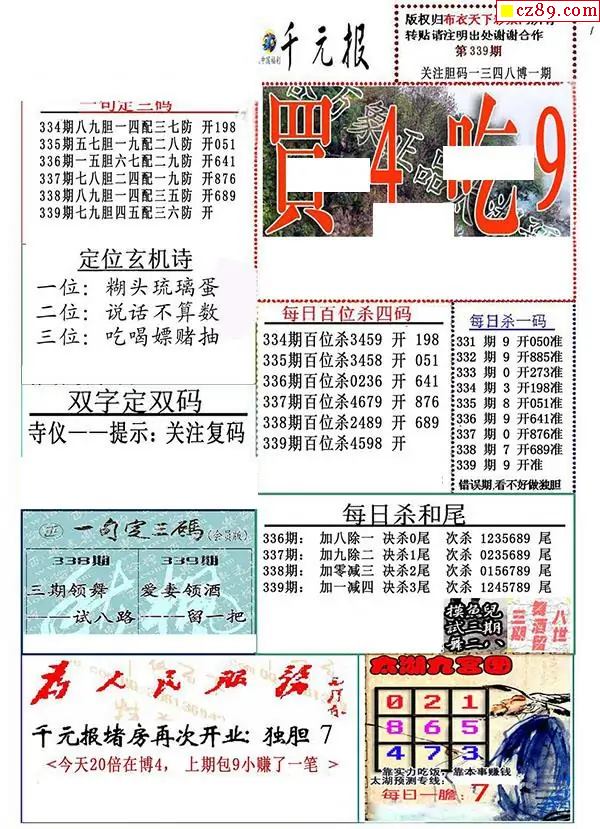 cz89.com
千元报
版权归布衣天下
转贴请注明出处谢谢合作
第339期
关注胆码一三四八博一期
一句定三码
334期八九胆一四配三七防 开198
335期五七胆一九配二八防 开051
336期一五胆六七配二九防 开641
337期七八胆二四配一九防 开876
338期八九胆一四配三五防 开689
339期七九胆四五配三六防 开
買4吃9
定位玄机诗
一位：糊头琉璃蛋
二位：说话不算数
三位：吃喝嫖赌抽
双字定双码
寺仪——提示：关注复码
每日百位杀四码
334期百位杀3459 开 198
335期百位杀3458 开 051
336期百位杀0236 开 641
337期百位杀4679 开 876
338期百位杀2489 开 689
339期百位杀4598 开
每日杀一码
331 期 9 开050准
332 期 9 开885准
333 期 0 开273准
334 期 3 开198准
335 期 8 开051准
336 期 9 开641准
337 期 0 开876准
338 期 7 开689准
339 期 9 开准
错误期,看不好做独胆
每日杀和尾
336期： 加八除一 决杀0尾 次杀 1235689 尾
337期： 加九除二 决杀1尾 次杀 0235689 尾
338期： 加零减三 决杀2尾 次杀 0156789 尾
339期： 加一减四 决杀3尾 次杀 1245789 尾
一句定三碼(会员版)
338期
三期领舞
——试八路
339期
爱妻领酒
——留一把
三期
舞酒留
八世
为人民服务
千元报堵房再次开业：独胆 7
<今天20倍在博4， 上期包9小赚了一笔 >
太湖九宫图
0 2 1
8 6 5
4 7 3
靠实力吃饭，靠本事赚钱
太湖预测专线：
每日一胆：7